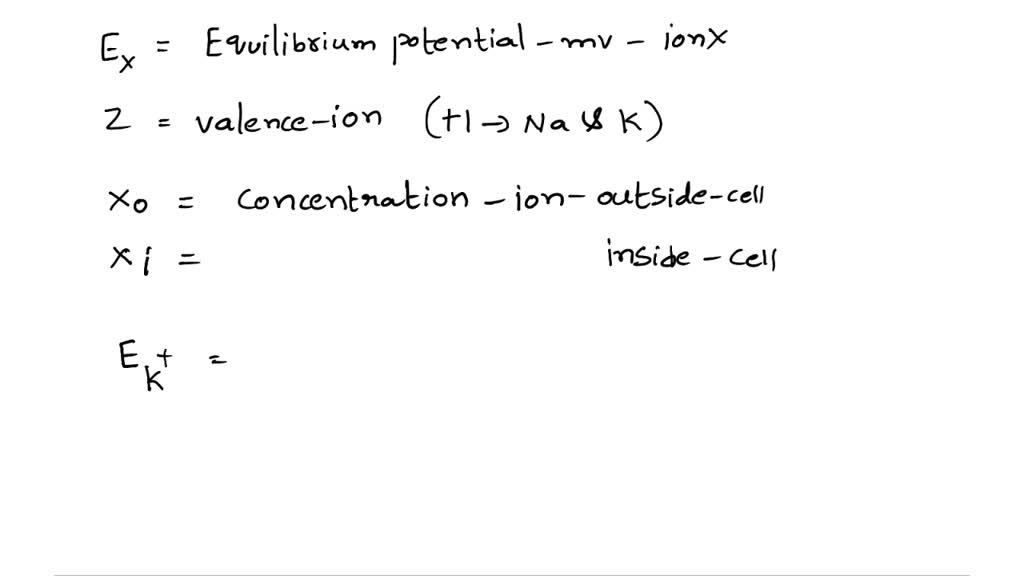 Ex = Equilibrium potential - mv - ion X
Z = valence-ion (+1 → Na & K)
Xo = concentration - ion - outside-cell
Xi = inside - cell
EK+ =